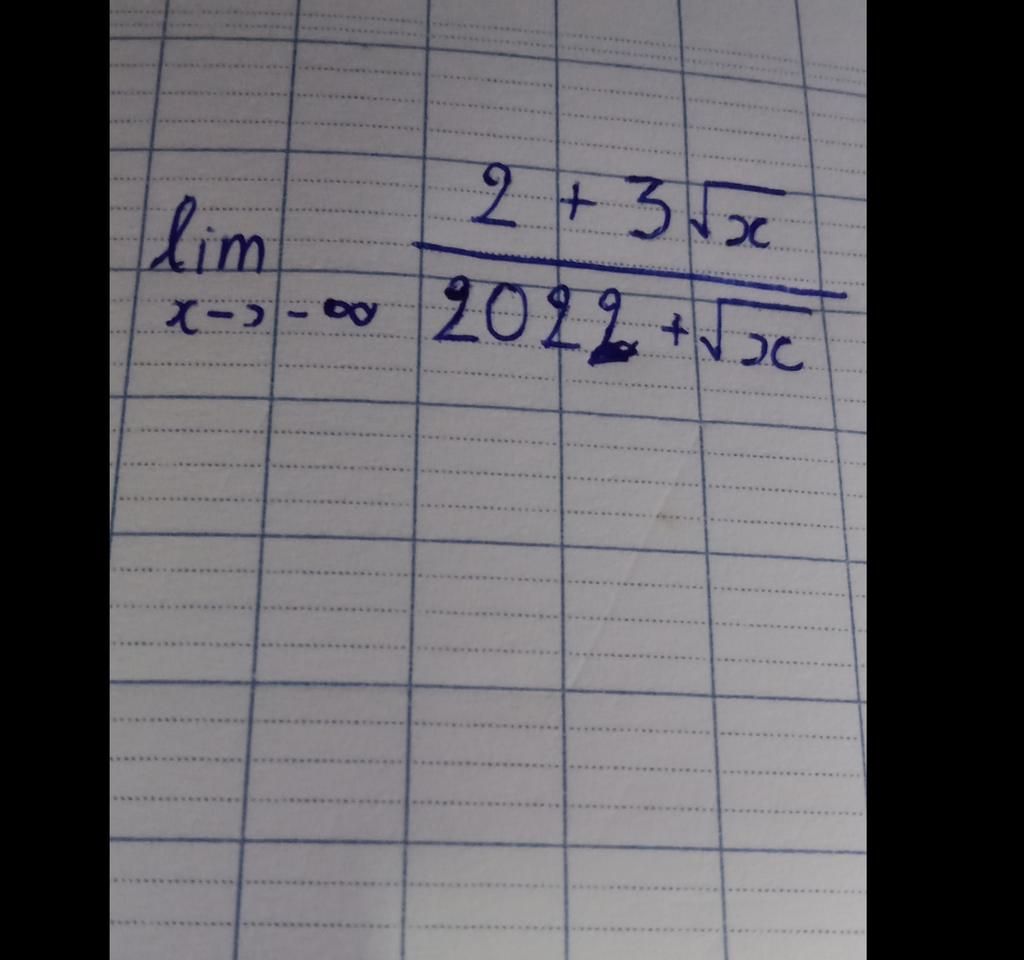 lim x→-∞ (2 + 3√x) / (2022 + √x)